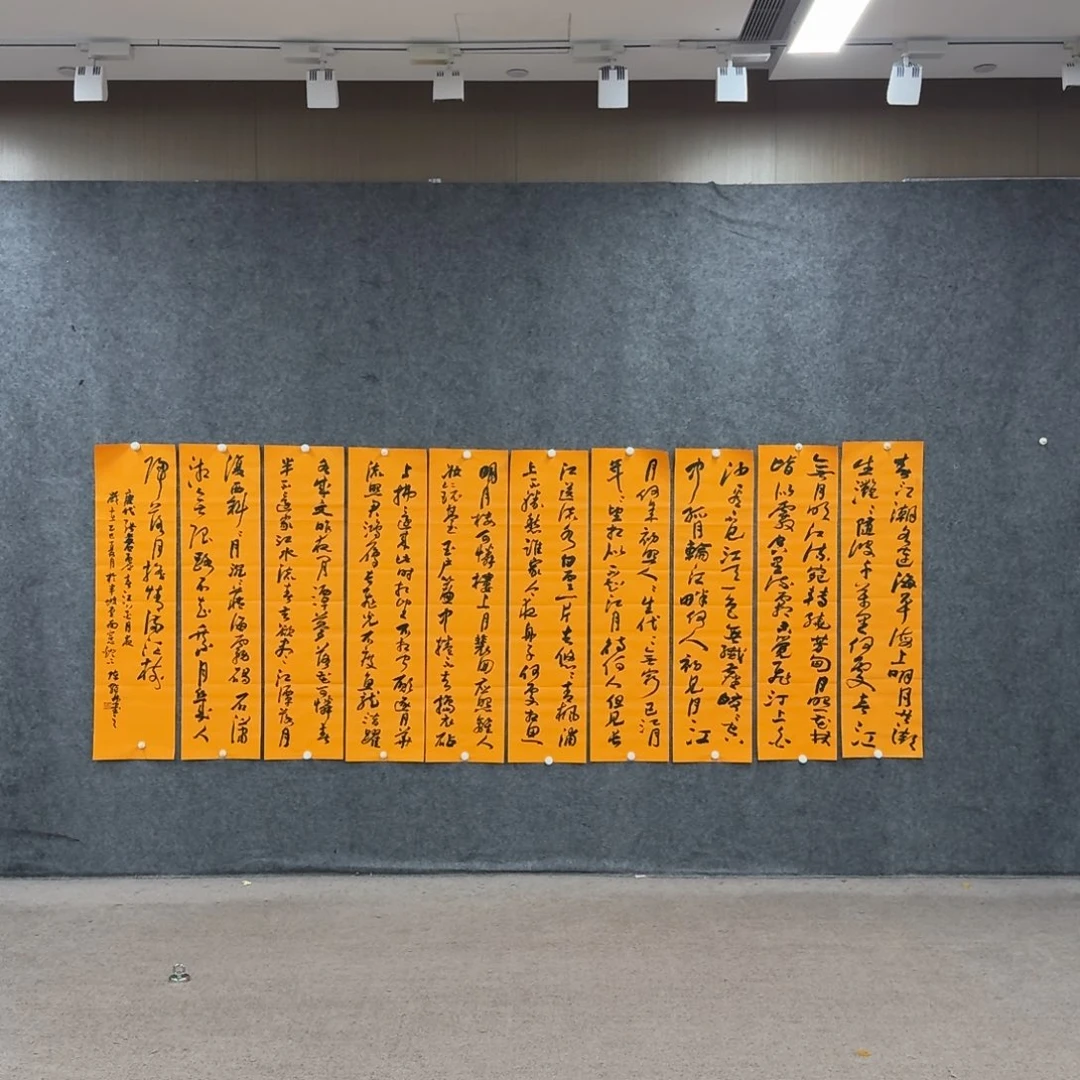 春江潮水連海平海上明月共潮
生灧〻隨波千萬里何處春江
無月明江流宛轉繞芳甸月照花林
皆似霰空里流霜不覺飛汀上白
沙看不見江天一色無纖塵皎〻空
中孤月輪江畔何人初見月江
月何年初照人〻生代〻無窮已江月
年〻望相似不知江月待何人但見長
江送流水白雲一片去悠〻青楓浦
上不勝愁誰家今夜扁舟子何處相思
明月樓可憐樓上月裴回應照離人
妝鏡臺玉戶簾中捲不去擣衣砧
上拂還來此時相望不相聞願逐月華
流照君鴻雁長飛光不度魚龍潛躍
水成文昨夜閒潭夢落花可憐春
半不還家江水流春去欲盡〻江潭落月
復西斜〻月沉〻藏海霧碣石瀟
湘無限路不知乘月幾人
歸落月搖情滿江樹
唐代張若虛春江花月夜